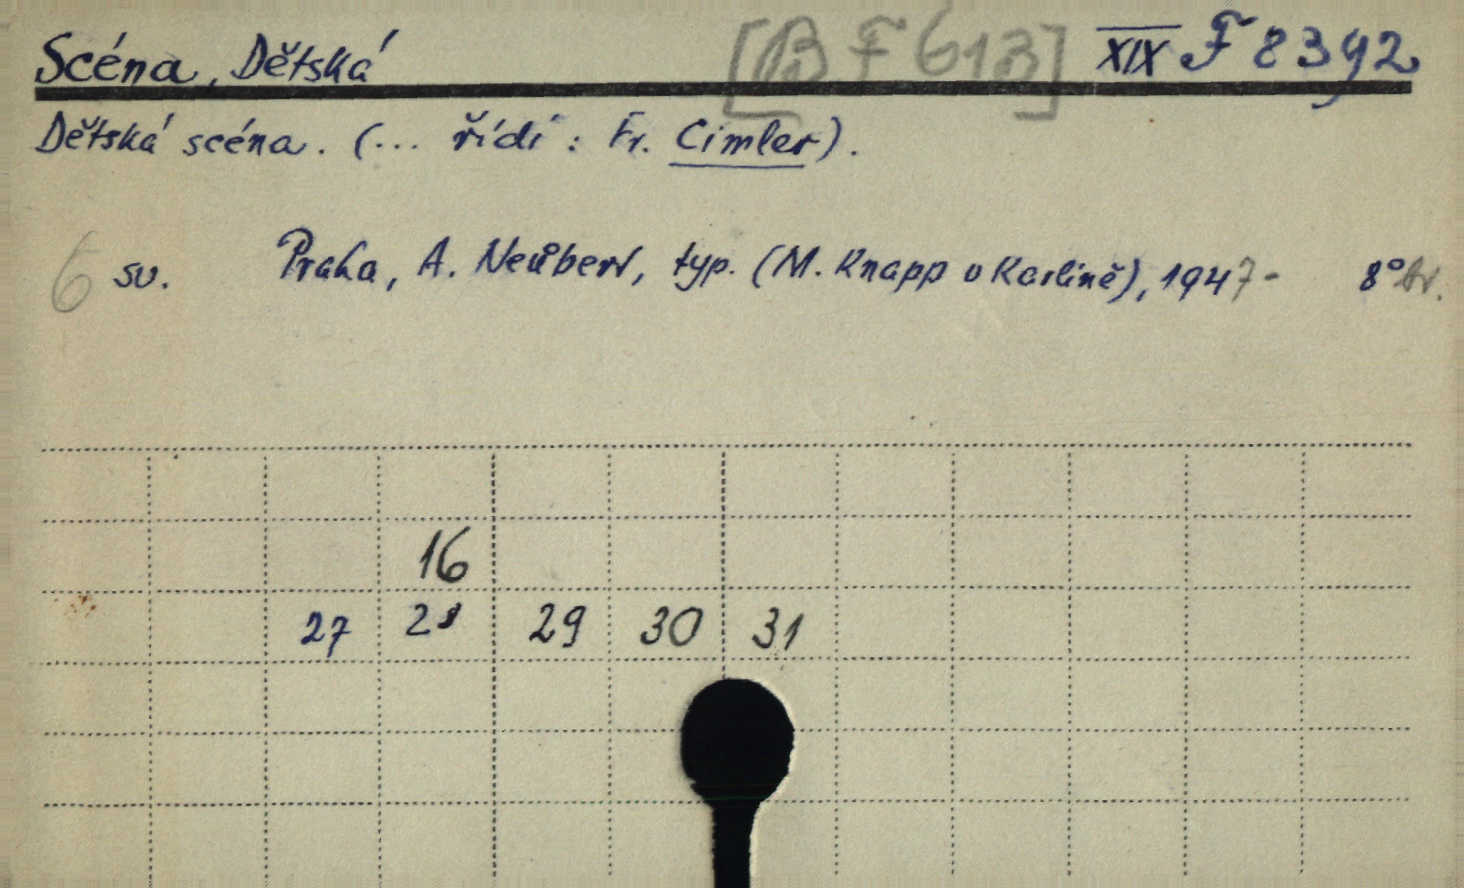 Scéna, Dětská [B F 613] XIX F 8392
Dětská scéna. (... řídí: Fr. Cimler).
6 sv. Praha, A. Neubert, typ. (M. Knapp v Karlíně), 1947- 8° br.
16
27 28 29 30 31